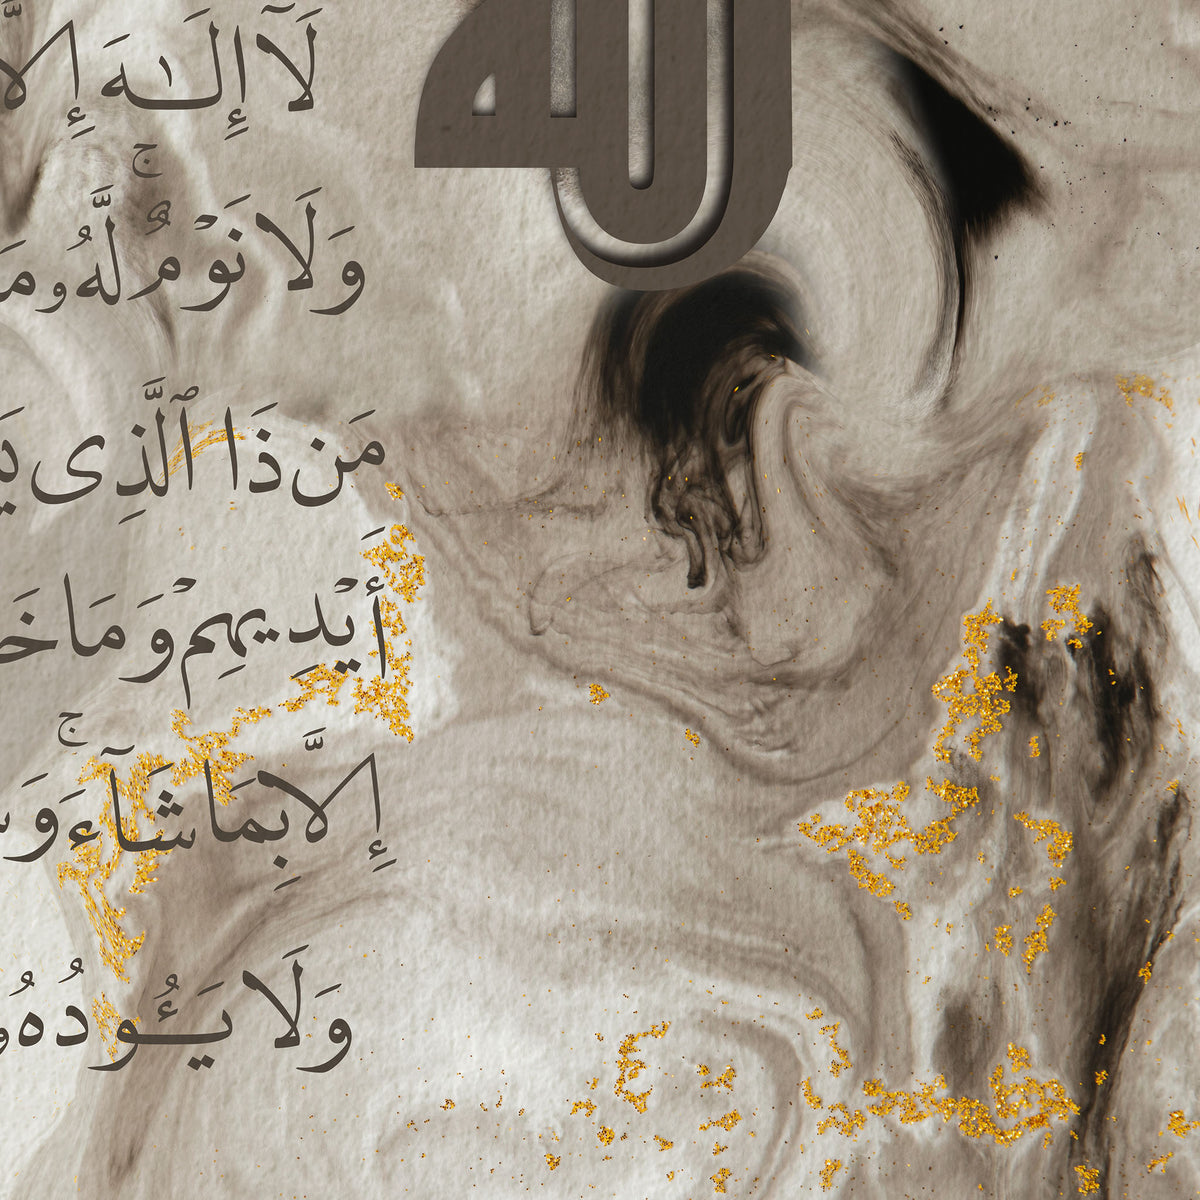 الله
لَآ إِلَـٰهَ إِلَّا
وَلَا نَوْمٌ ۚ لَّهُۥ
مَن ذَا ٱلَّذِى
أَيْدِيهِمْ وَمَا
إِلَّا بِمَا شَآءَ ۚ
وَلَا يَـُٔودُهُۥ